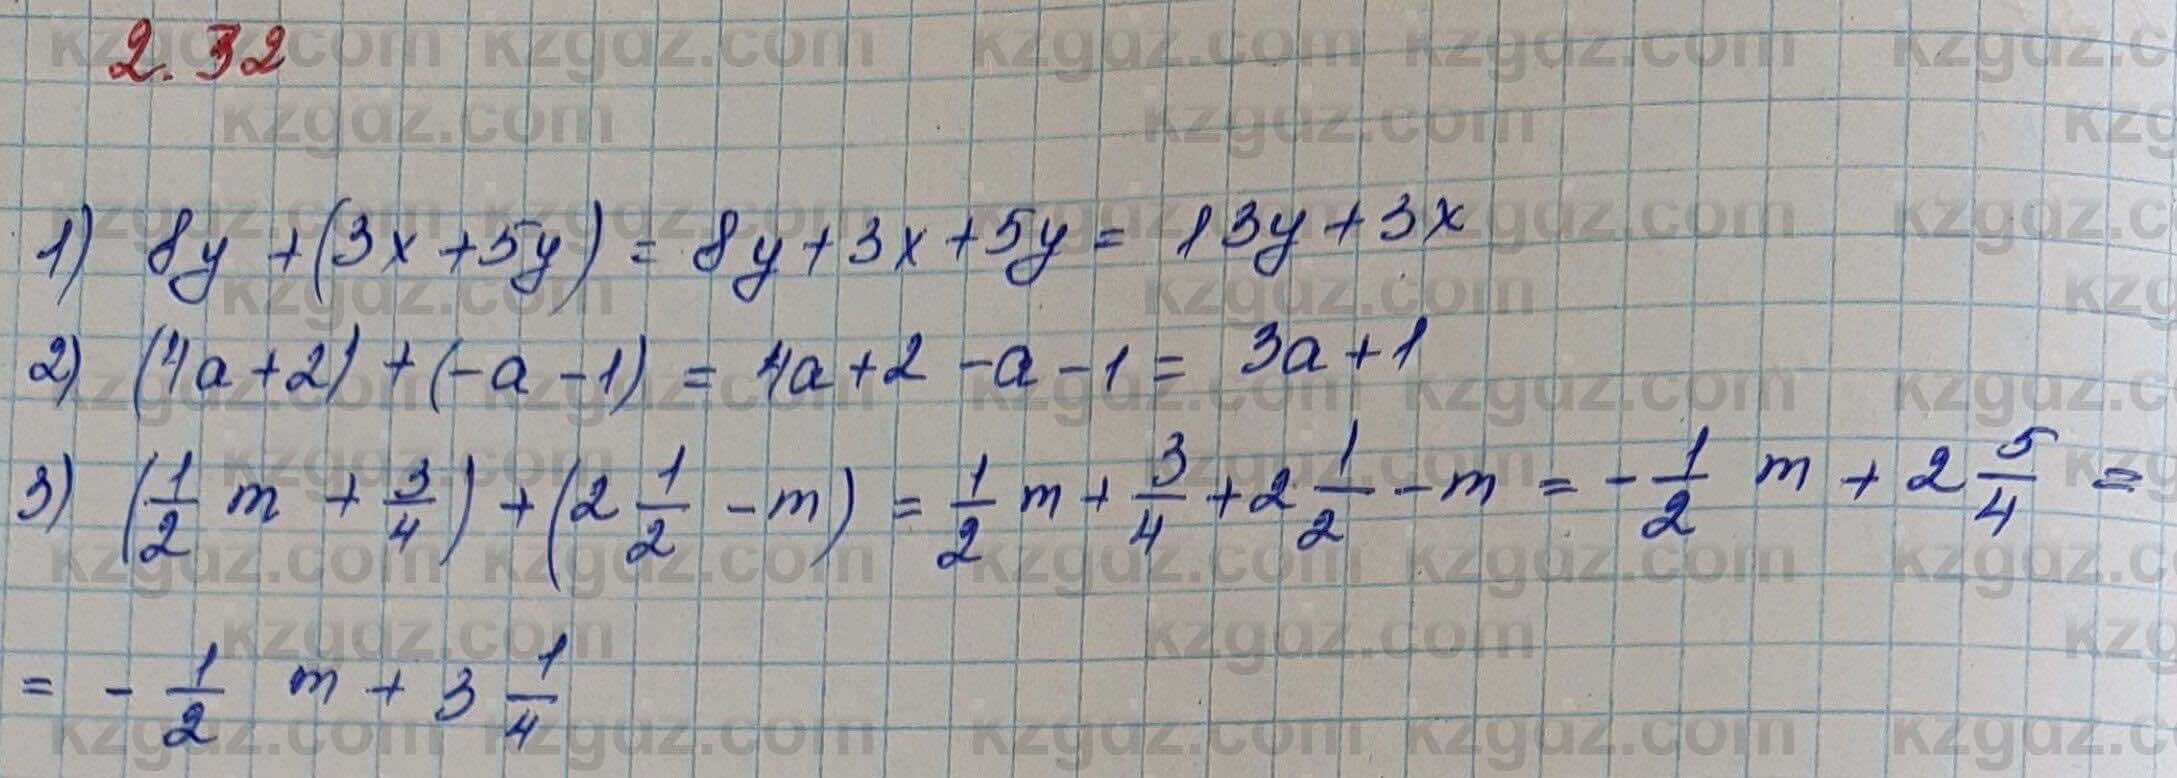 2.32
1) 8y + (3x + 5y) = 8y + 3x + 5y = 13y + 3x
2) (4a + 2) + (-a - 1) = 4a + 2 - a - 1 = 3a + 1
3) (1/2 m + 3/4) + (2 1/2 - m) = 1/2 m + 3/4 + 2 1/2 - m = - 1/2 m + 2 5/4 =
= - 1/2 m + 3 1/4
kzgdz.com